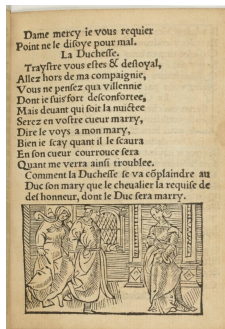 Dame mercy ie vous requier
Point ne le disoye pour mal.
La Duchesse.
Traystre vous estes & desloyal,
Allez hors de ma compaignie,
Vous ne pensez qua villennie
Dont ie suis fort desconfortee,
Mais deuant qui soit la nuictee
Serez en vostre cueur marry,
Dire le voys a mon mary,
Bien ie scay quant il le scaura
En son cueur courrouce sera
Quant me verra ainsi troublee.
Comment la Duchesse se va cõplaindre au
Duc son mary que le cheualier la requise de
deshonneur, dont le Duc sera marry.